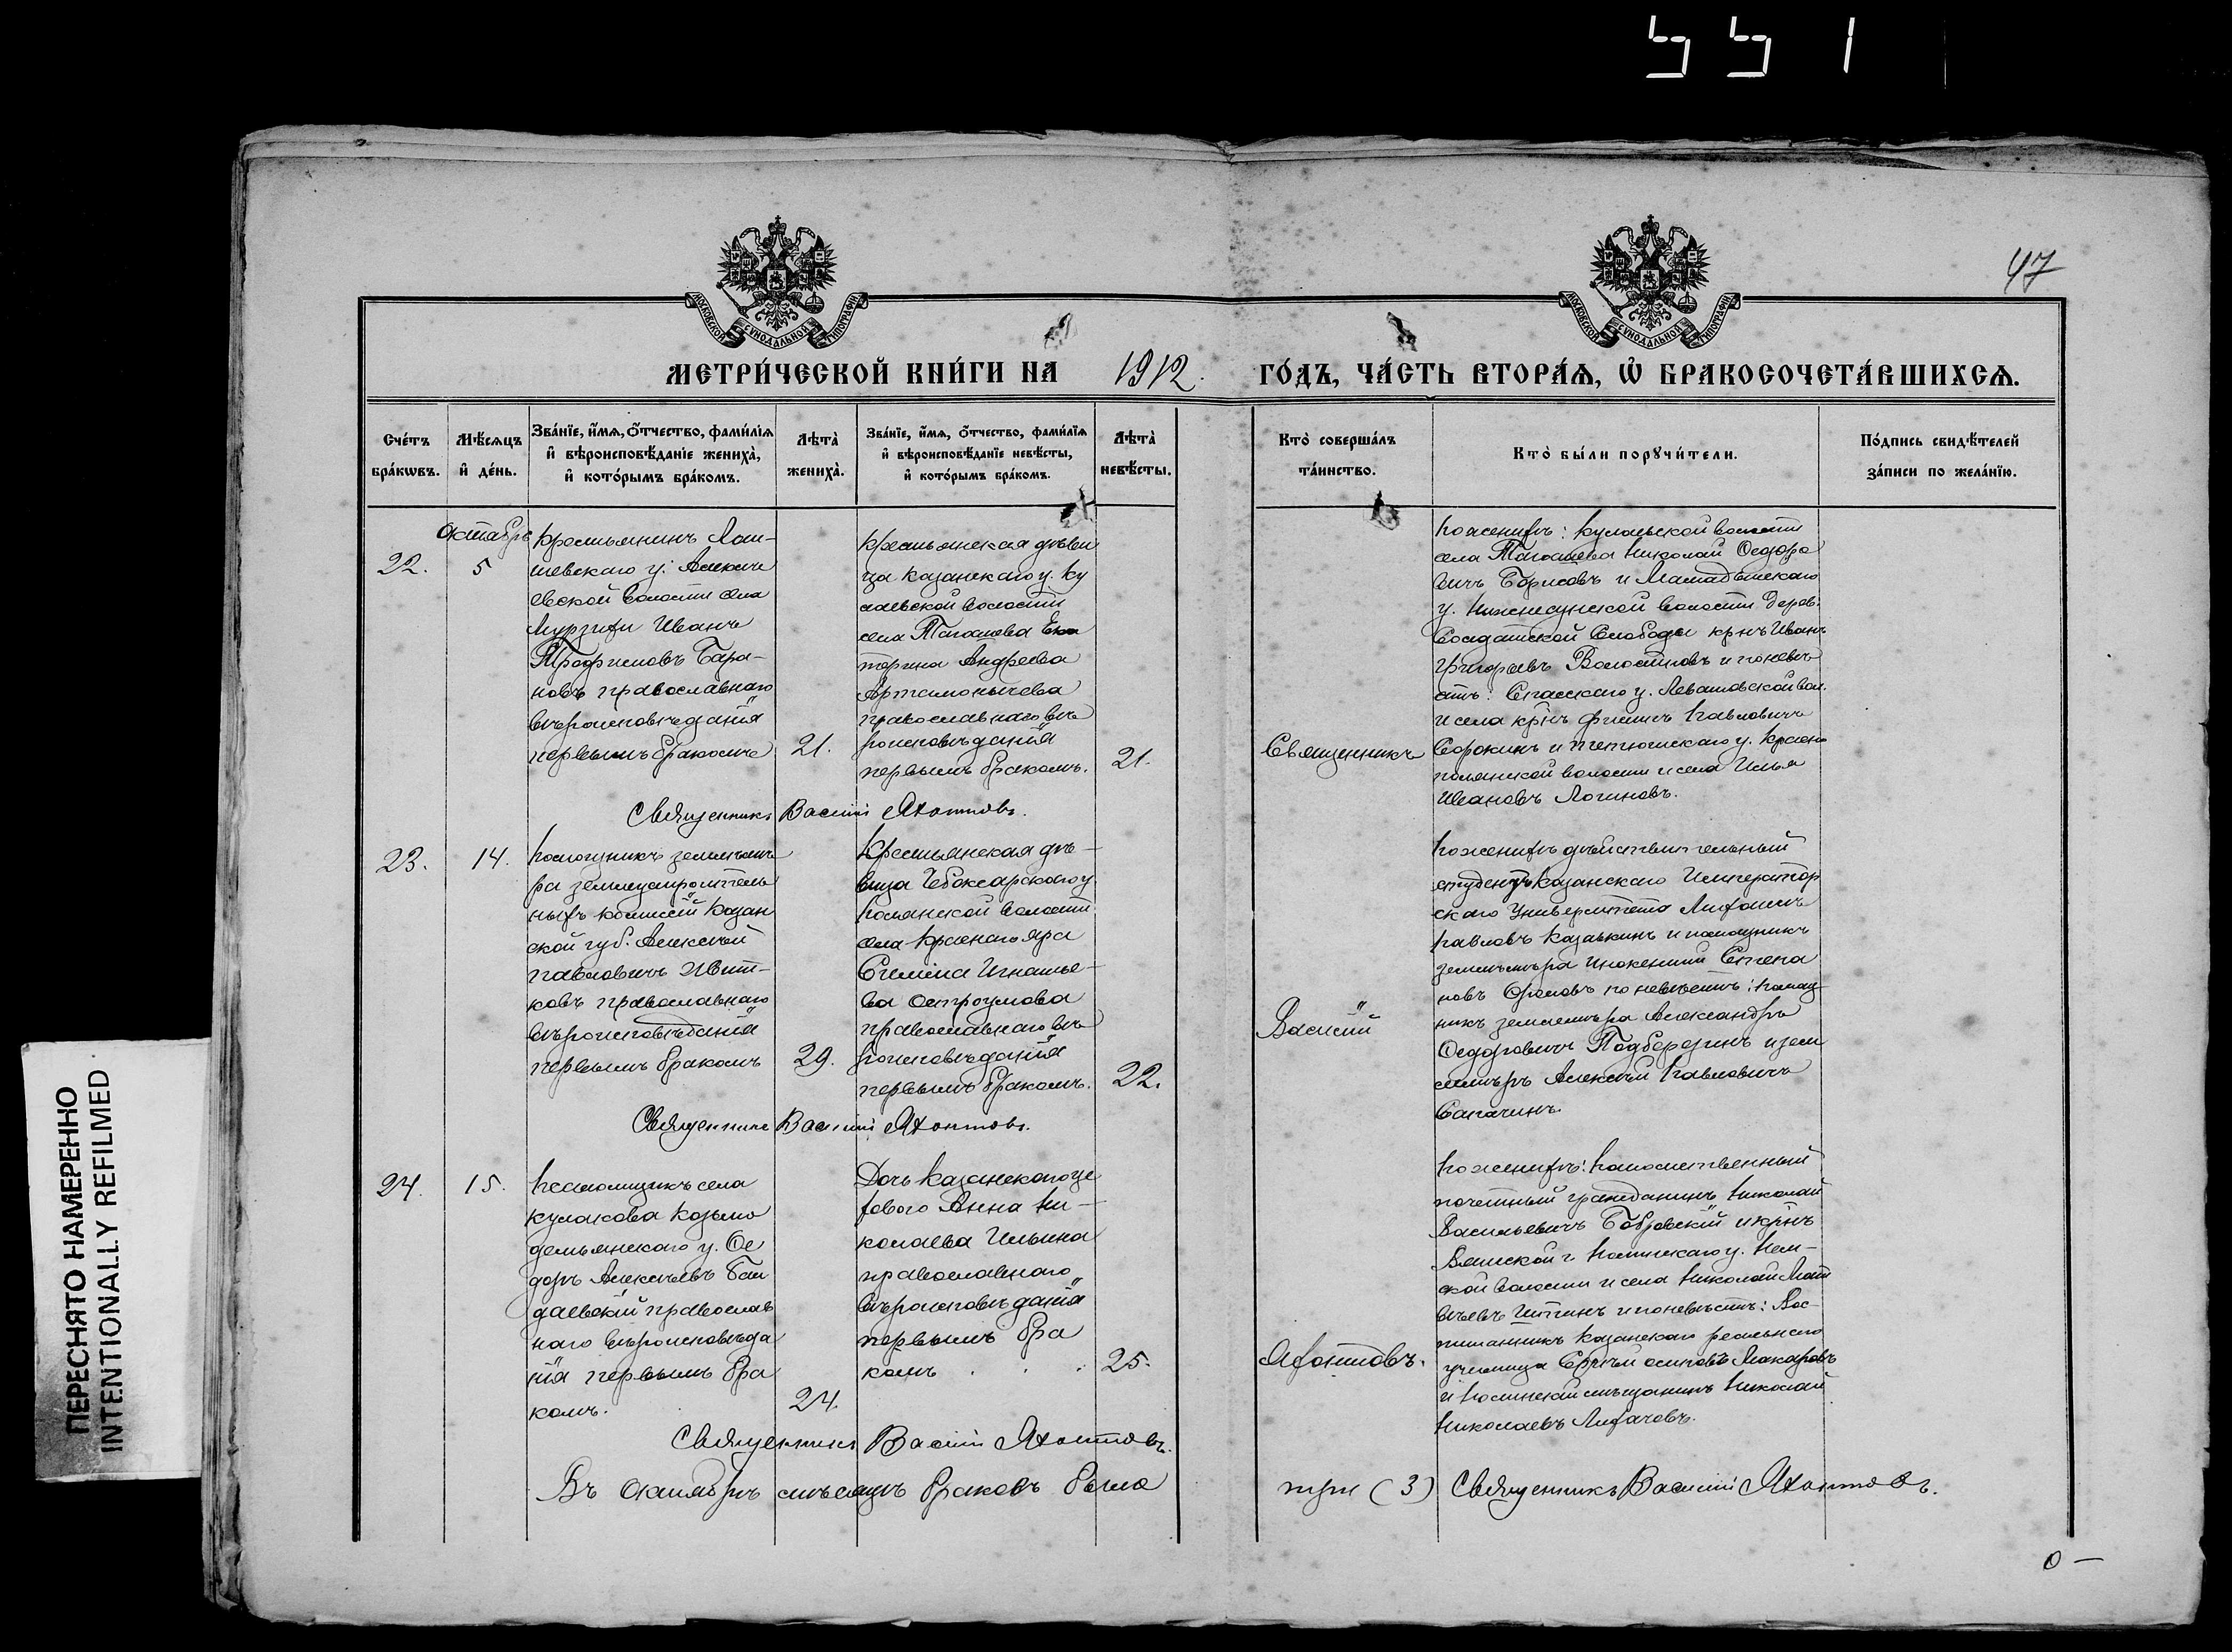 551
47
МОСКОВСКОЙ СУНОДАЛЬНОЙ ТИПОГРАФІИ
МОСКОВСКОЙ СУНОДАЛЬНОЙ ТИПОГРАФІИ
МЕТРИ́ЧЕСКОЙ КНИ́ГИ НА 1912. ГО́ДЪ, ЧА́СТЬ ВТОРА́Я, Ѡ҆ БРАКОСОЧЕТА́ВШИХСЯ.
Сче́тъ
бра́кѡвъ.
Мѣ́сяцъ
и҆ де́нь.
Зва́нїе, и҆́мя, ѻ҆́тчество, фами́лїя
и҆ вѣроисповѣ́данїе жениха̀,
и҆ кото́рымъ бра́комъ.
Лѣта̀
жениха̀.
Зва́нїе, и҆́мя, ѻ҆́тчество, фами́лїя
и҆ вѣроисповѣ́данїе невѣ́сты,
и҆ кото́рымъ бра́комъ.
Лѣта̀
невѣ́сты.
Кто̀ соверша́лъ
та́инство.
Кто̀ бы́ли порꙋчи́тели.
По́дпись свидѣ́телей
за́писи по жела́нїю.
22.
Октябрь
5
Крестьянинъ Лаи-
шевскаго у. Алексѣ
евской волости села
Мурзихи Иванъ
Трофимовъ Бара-
новъ православнаго
вѣроисповѣданія
первымъ бракомъ
21.
Крестьянская дѣви
ца Казанскаго у. Ку
лаевской волости
села Тагашева Ека
терина Андреева
Артамонычева
православнаго вѣ
роисповѣданія
первымъ бракомъ.
21.
Священникъ
По женихѣ: Кулаевской волости
села Тагашева Николай Ѳедоро
вичъ Борисовъ и Мамадышскаго
у. Нижнесунской волости дерев.
Солдатской Слободы крнъ Иванъ
Григорьевъ Волостновъ и по невѣ
стѣ: Спасскаго у. Левашовской вол.
и села крнъ Филипъ Павловичъ
Сорокинъ и Тетюшскаго у. Красно
полянской волости и села Илья
Ивановъ Логиновъ.
Священникъ Василій Яхонтовъ.
23.
14.
Помощникъ землемѣ
ра землеустроитель
ныхъ комиссій Казан
ской губ. Алексѣй
Павловичъ
православнаго
вѣроисповѣданія
первымъ бракомъ
29.
Крестьянская дѣ-
вица Чебоксарскаго у.
Помянской волости
села Краснаго яра
Игнатье-
ва Остроумова
православнаго вѣ
роисповѣданія
первымъ бракомъ.
22.
Василій
По женихѣ дѣйствительный
студентъ Казанскаго Император
скаго Университета Михаилъ
Павловъ Казанкинъ и помощникъ
землемѣра Инокентій Степа
новъ Орловъ по невѣстѣ: помощ
никъ землемѣра Александръ
Ѳедоровичъ Подберезинъ и зем
лемѣръ Алексѣй Павловичъ
Сапачинъ.
Священникъ Василій Яхонтовъ.
24.
15.
Псаломщикъ села
Кулакова Козьмо
демьянскаго у. Ѳе
доръ Алексѣевъ Бай
даевскій православ
наго вѣроисповѣда
нія первымъ бра
комъ.
24.
Дочь Казанскаго це
хового Анна Ни-
колаева Ильина
православнаго
вѣроисповѣданія
первымъ бра
комъ . . .
25.
Яхонтовъ.
По женихѣ: Потомственный
почетный гражданинъ Николай
Васильевичъ Бобровскій и крнъ
Вятской г. Нолинскаго у. Нем-
ской волости и села Николай Мат
вѣевъ и по невѣстѣ: Вос-
питанникъ Казанскаго реальнаго
училища Сергѣй Осиповъ Макаровъ
и Нолинскій мѣщанинъ Николай
Николаевъ Лихачовъ.
Священникъ Василій Яхонтовъ.
Въ Октябрѣ мѣсяцѣ браковъ было три (3) Священникъ Василій Яхонтовъ.
ПЕРЕСНЯТО НАМЕРЕННО
INTENTIONALLY REFILMED